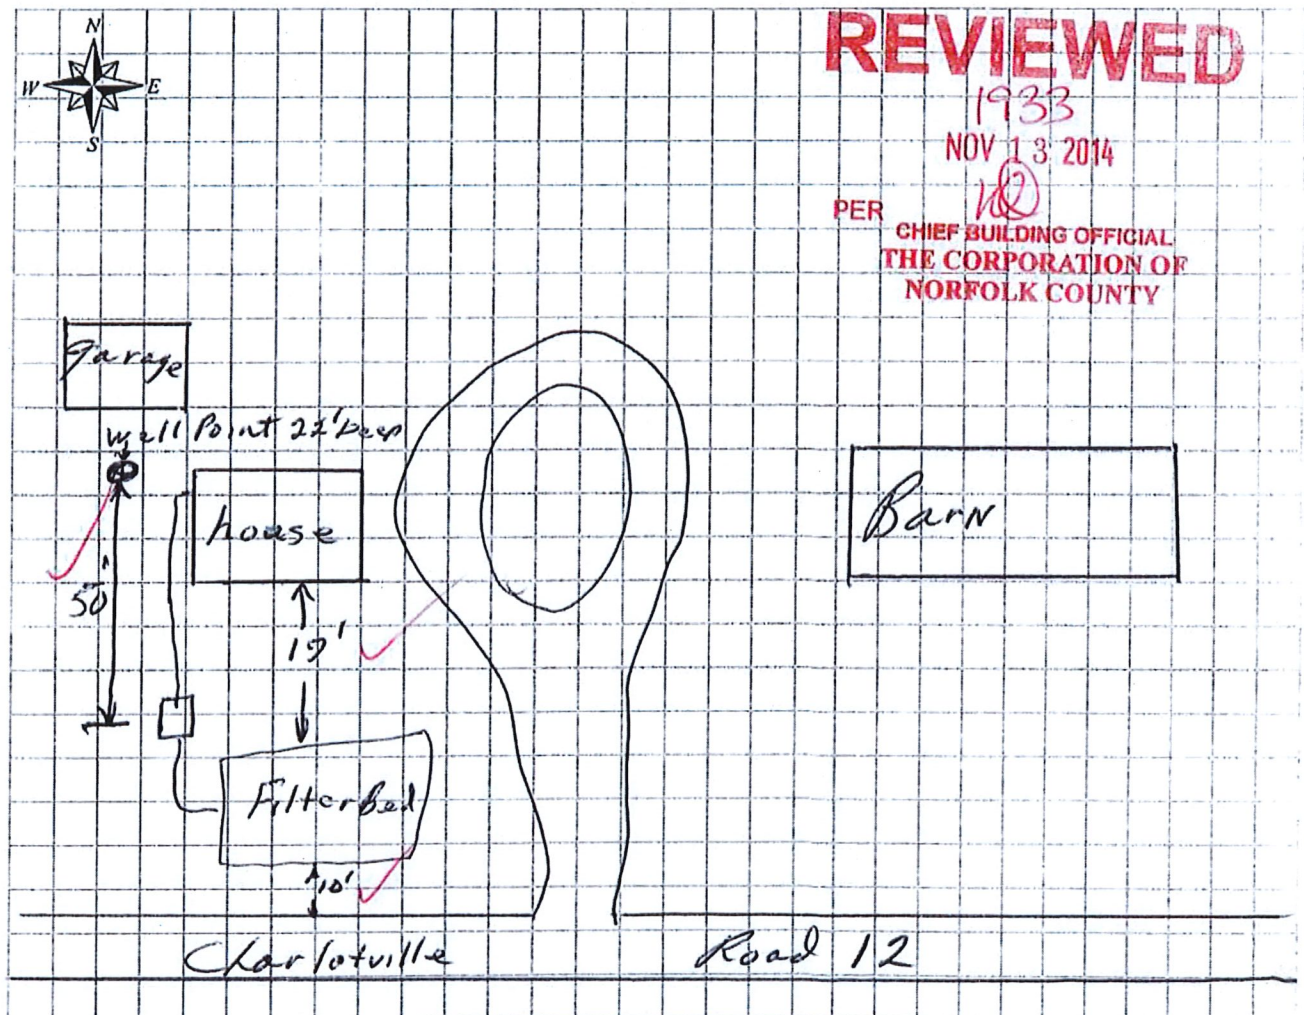 N
W E
S
REVIEWED
1933
NOV 13 2014
PER
CHIEF BUILDING OFFICIAL
THE CORPORATION OF
NORFOLK COUNTY
garage
well Point 22' Deep
house
Barn
50'
19'
FilterBed
10'
Charlotville Road 12